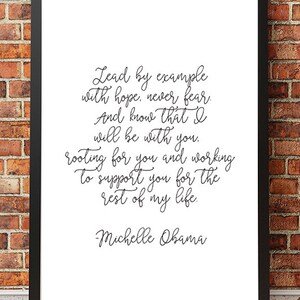 Lead by example
with hope, never fear.
And know that I
will be with you,
rooting for you and working
to support you for the
rest of my life.
Michelle Obama